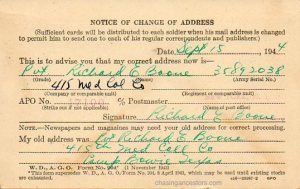 NOTICE OF CHANGE OF ADDRESS
(Sufficient cards will be distributed to each soldier when his mail address is changed
to permit him to send one to each of his regular correspondents and publishers.)
Date Sept 15, 1944
This is to advise you that my correct address now is—
Pvt Richard E Boone 35892038
(Grade) (Army Serial No.)
415 Med Col Co
(Company or comparable unit) (Regiment or comparable unit)
APO No. 17100 % Postmaster
(Strike out if not applicable) (Name of post office)
Signature Richard E Boone
NOTE.—Newspapers and magazines may need your old address for correct processing.
My old address was Pvt Richard E Boone
415th Med Coll Co
Camp Bowie Texas
W. D., A. G. O. Form No. 204
1 November 1943
This form supersedes W. D., A. G. O. Form No. 204, 8 April 1943, which may be used until existing stocks are exhausted.
GPO
chasingancestors.com